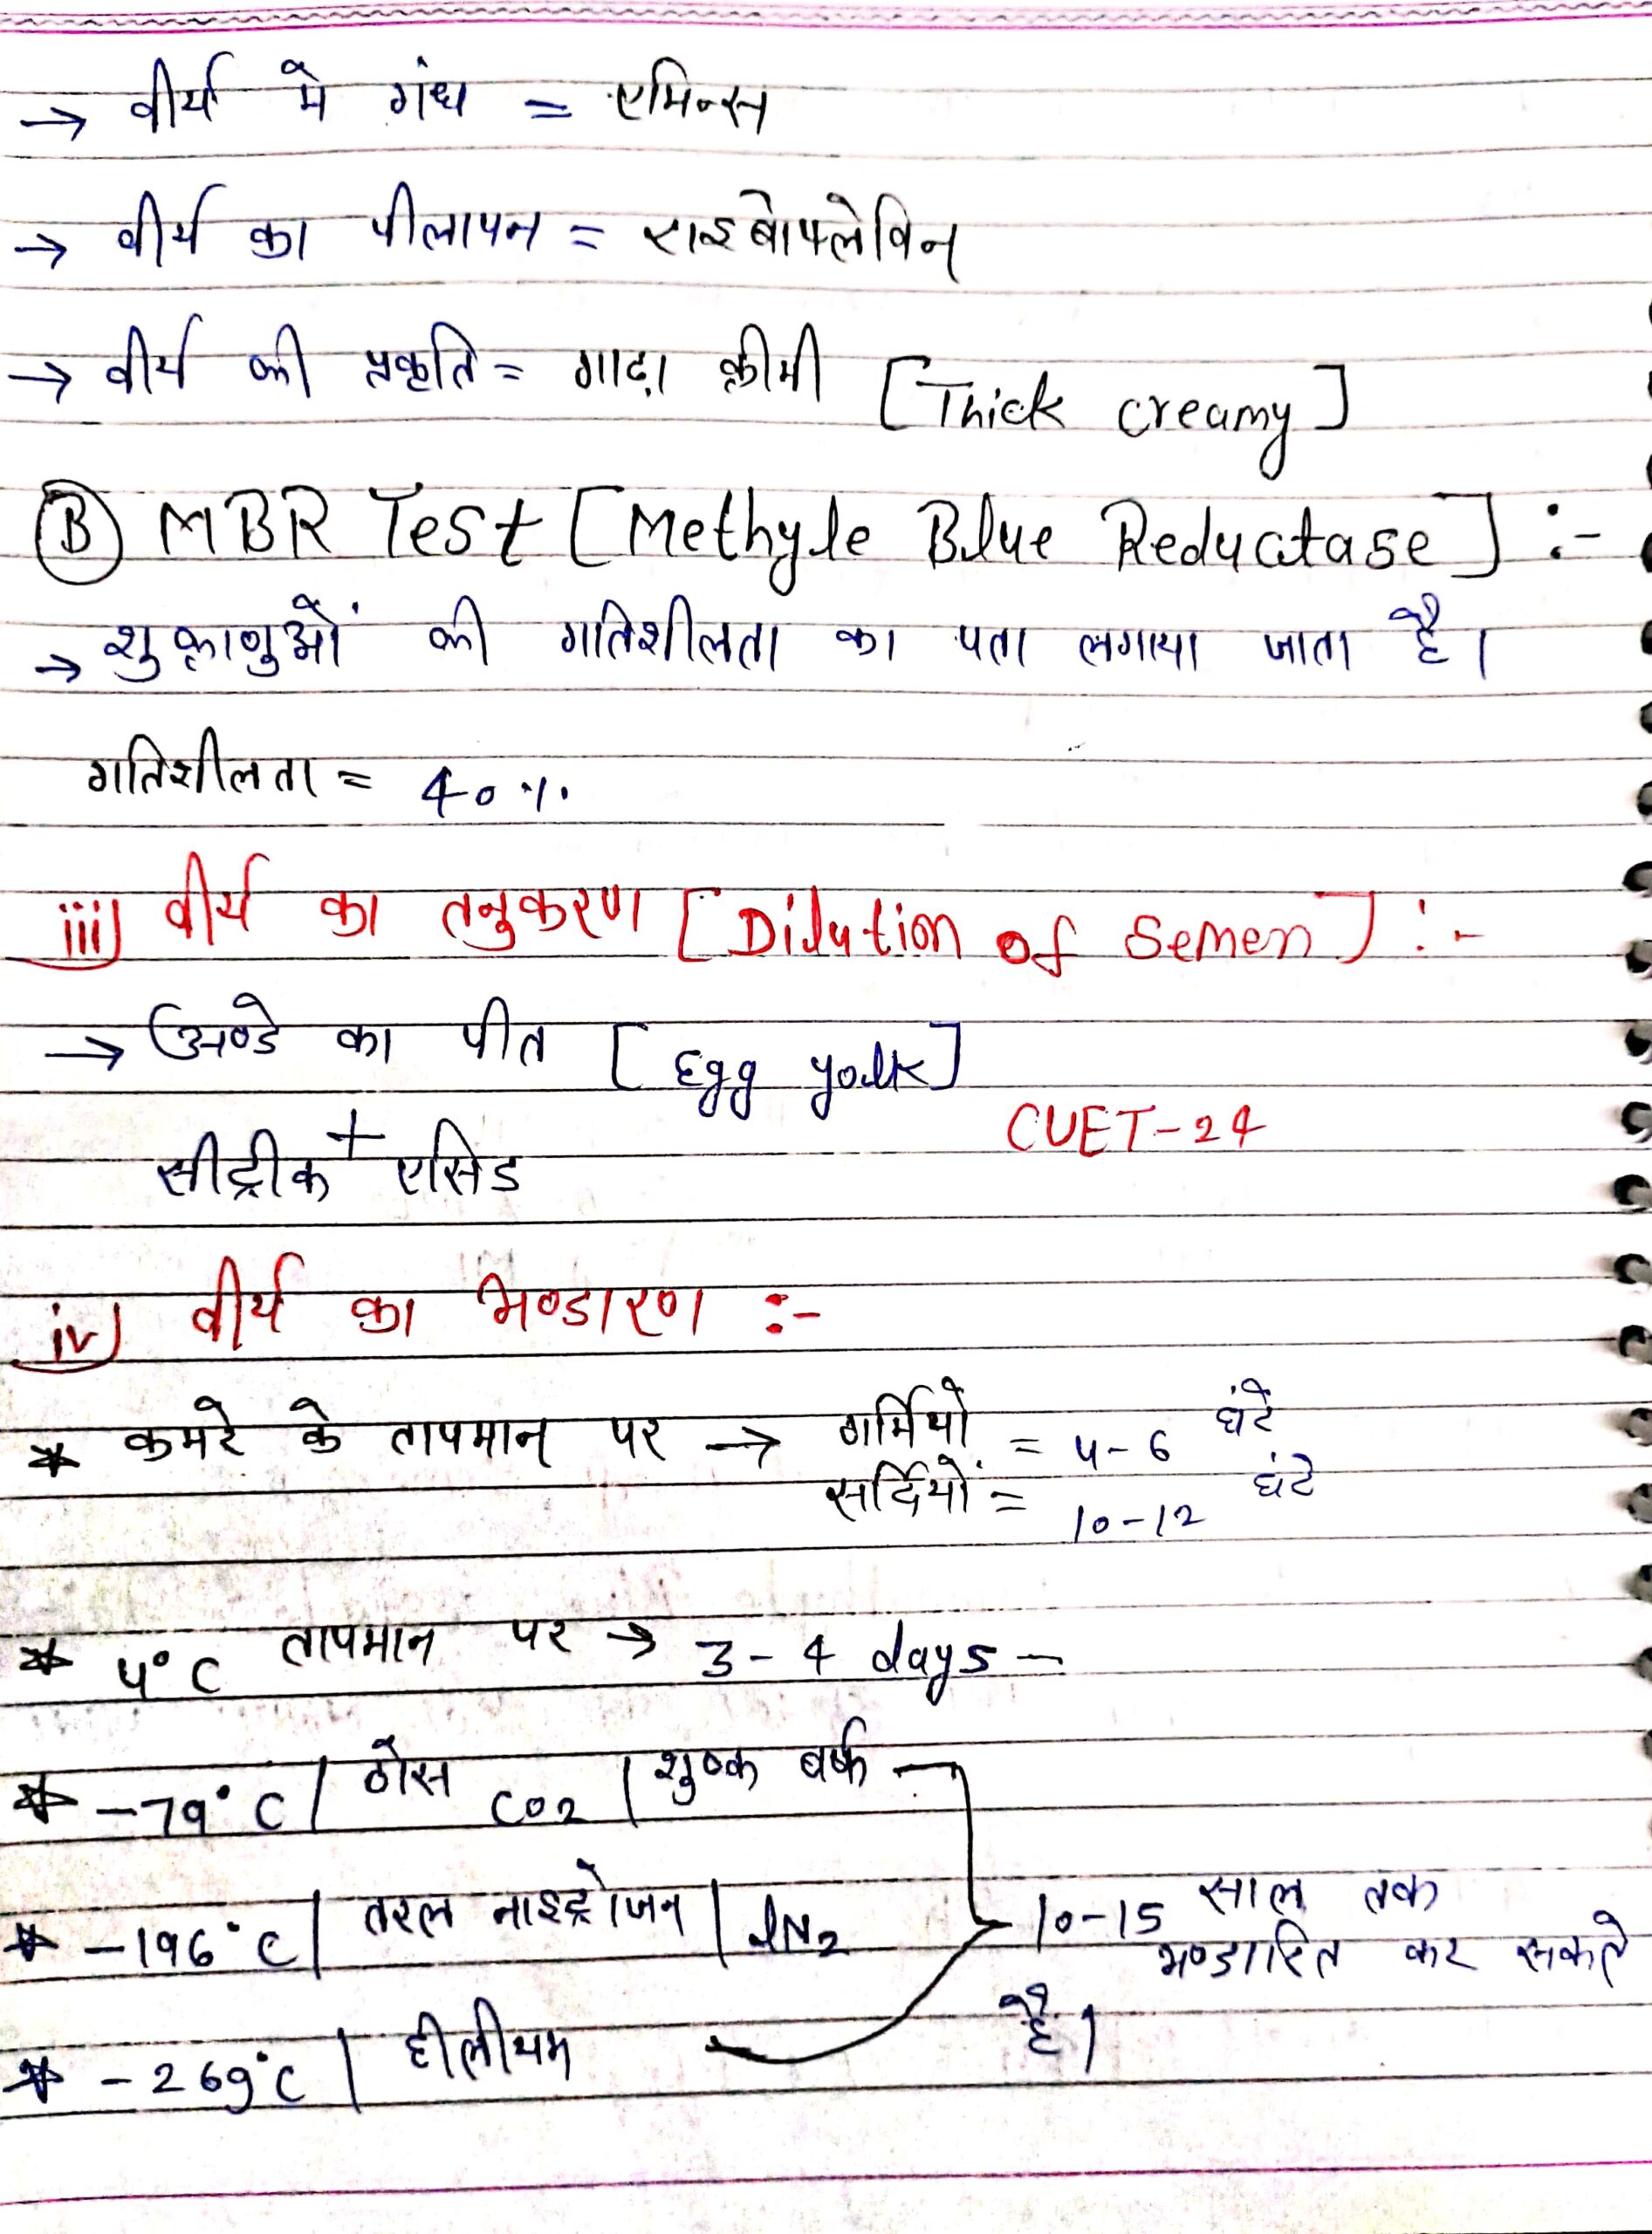 → वीर्य मे गंध = एमिन्स
→ वीर्य का पीलापन = राइबोफ्लेविन
→ वीर्य की प्रकृति = गाढ़ा क्रीमी [Thick creamy]
(B) MBR Test [Methyle Blue Reductase] :-
→ शुक्राणुओं की गतिशीलता का पता लगाया जाता है।
गतिशीलता = 40%
iii) वीर्य का तनुकरण [Dilution of Semen] :-
→ अण्डे का पीत [Egg yolk]
+
CUET-24
सीट्रीक एसिड
iv) वीर्य का भण्डारण :-
* कमरे के तापमान पर → गर्मियों = 4-6 घंटे
सर्दियों = 10-12 घंटे
* 4°C तापमान पर → 3-4 days -
* -79°C | ठोस CO2 | शुष्क बर्फ
* -196°C | तरल नाइट्रोजन | lN2
10-15 साल तक
भण्डारित कर सकते
है।
* -269°C | हीलीयम